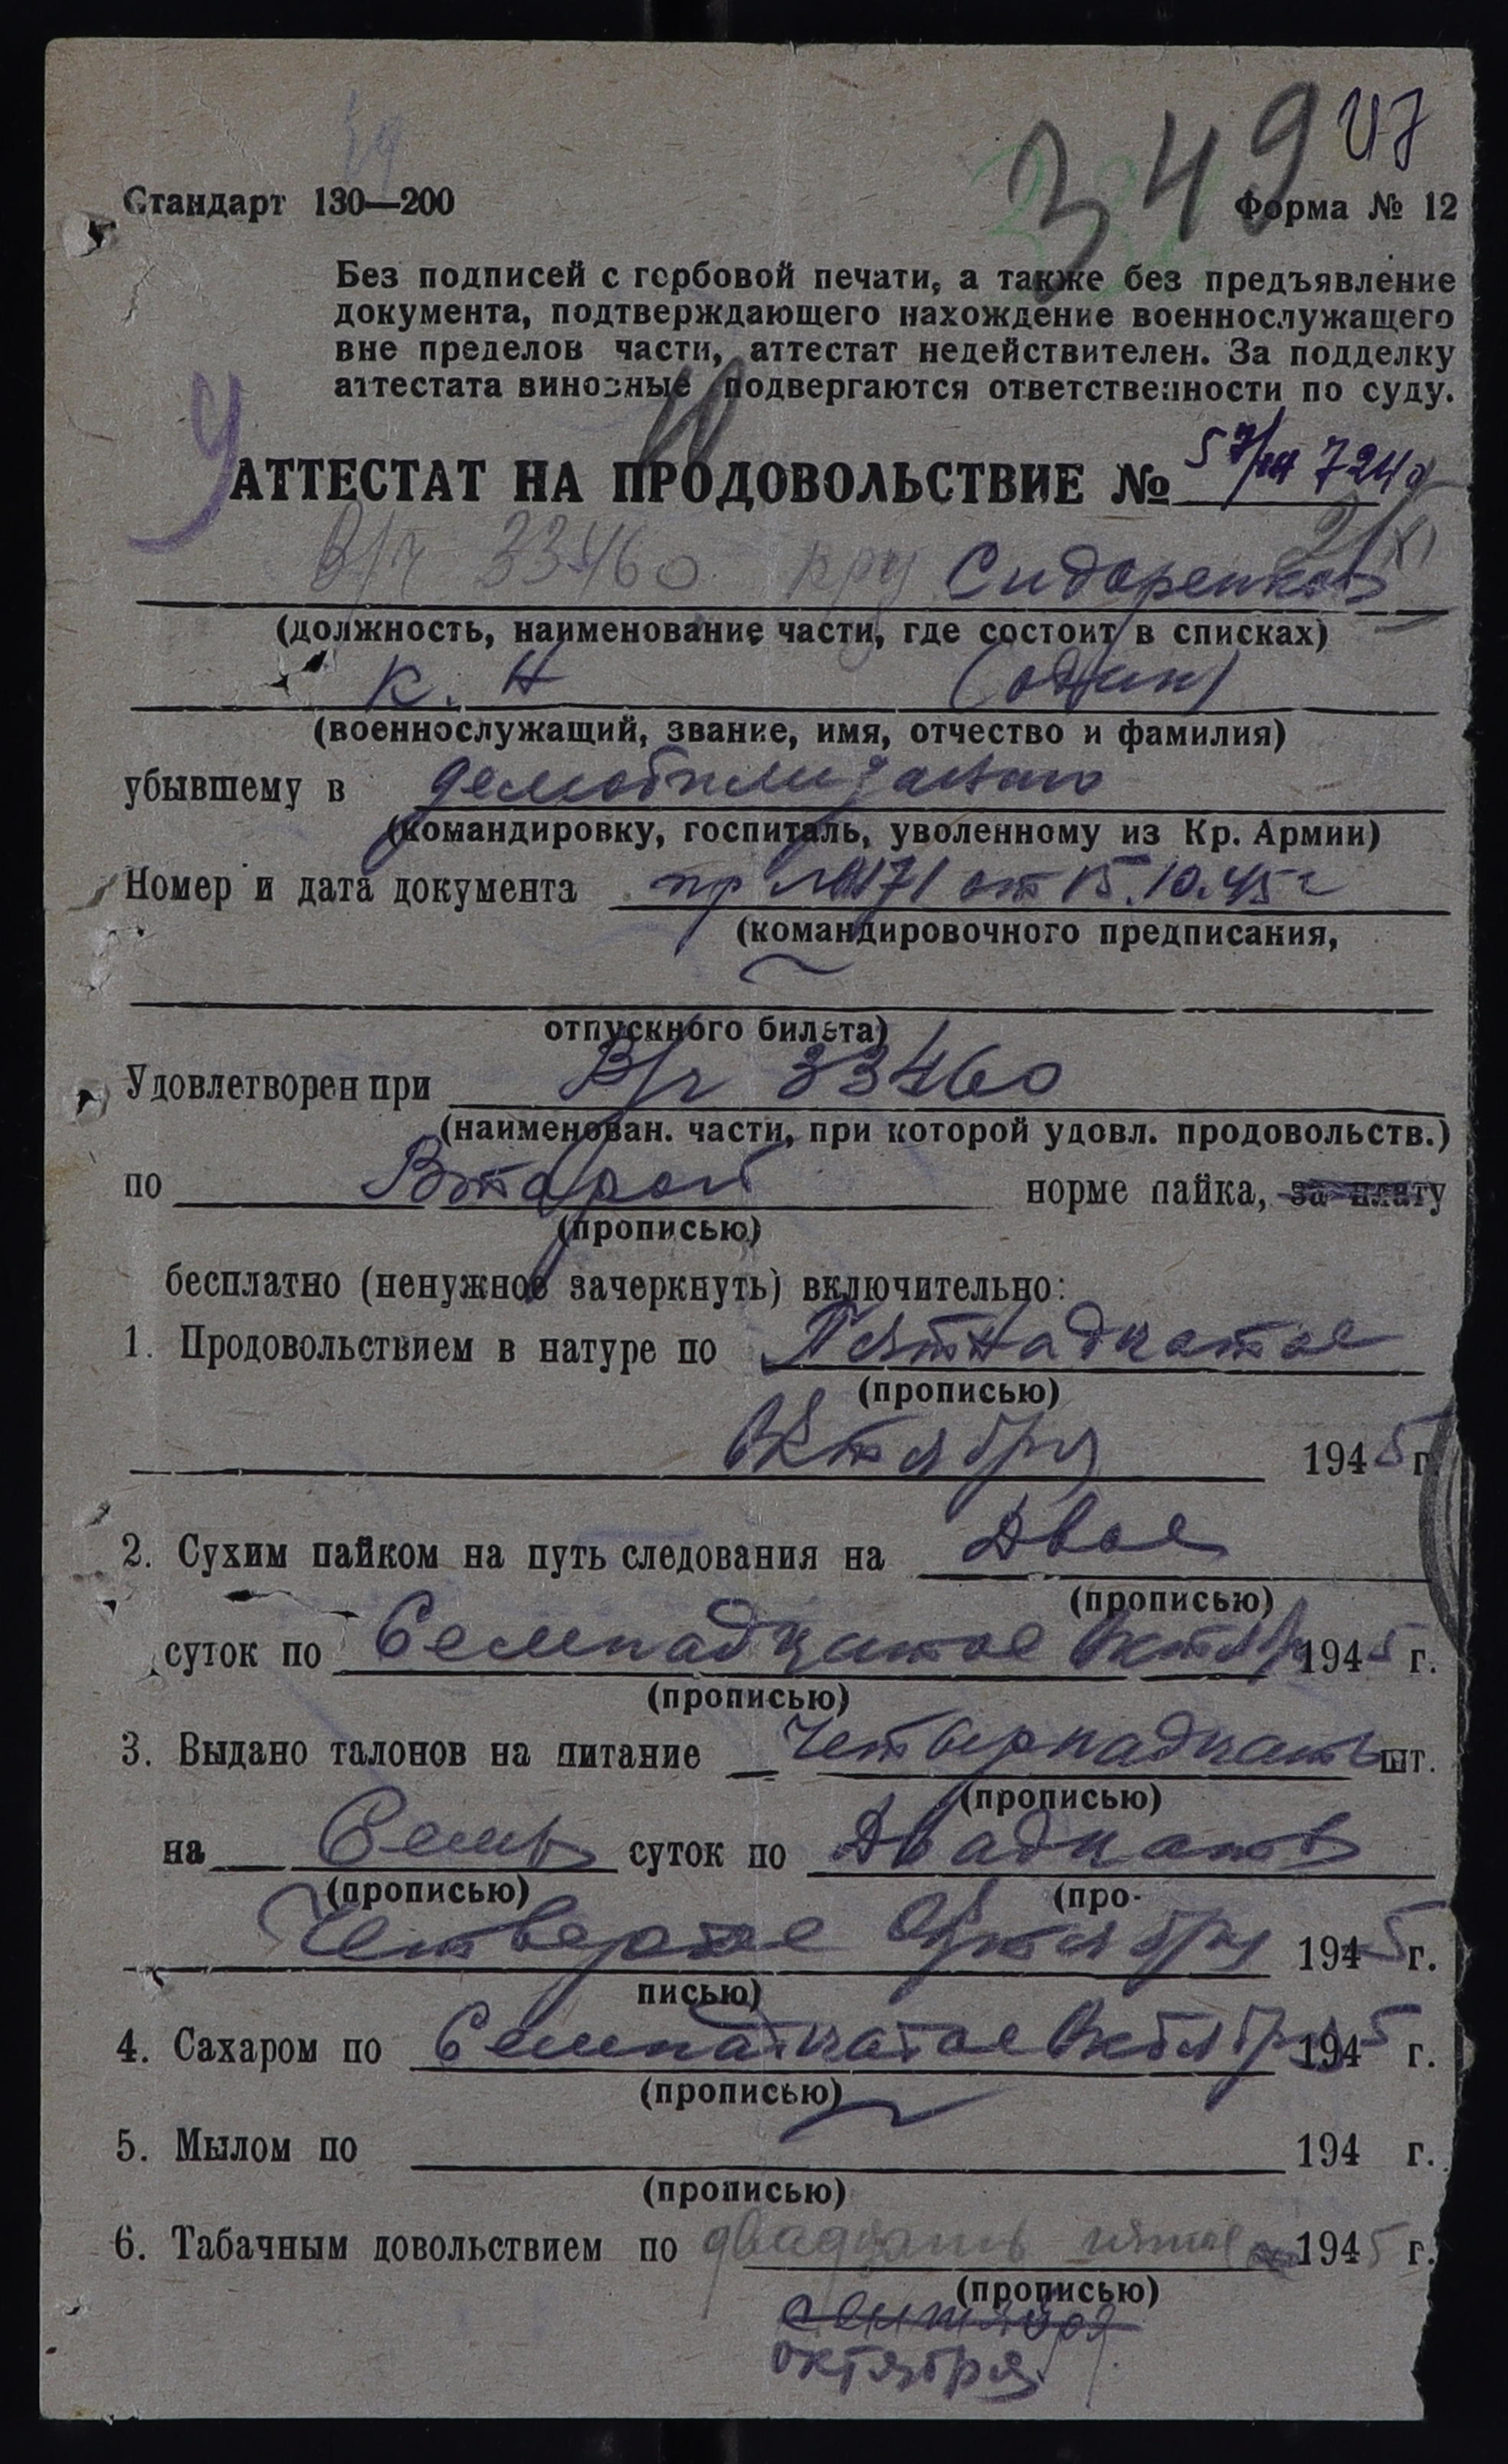 349
Стандарт 130—200
Форма № 12
Без подписей с гербовой печати, а также без предъявление
документа, подтверждающего нахождение военнослужащего
вне пределов части, аттестат недействителен. За подделку
аттестата виновные подвергаются ответственности по суду.
АТТЕСТАТ НА ПРОДОВОЛЬСТВИЕ №
В/ч 33460 кру Сидоренков
(должность, наименование части, где состоит в списках)
К. Н (один)
(военнослужащий, звание, имя, отчество и фамилия)
убывшему в демобилизацию
(командировку, госпиталь, уволенному из Кр. Армии)
Номер и дата документа пр №0171 от 15.10.45 г
(командировочного предписания,
отпускного билета)
Удовлетворен при В/ч 33460
(наименован. части, при которой удовл. продовольств.)
по Второй норме пайка, за плату
(прописью)
бесплатно (ненужное зачеркнуть) включительно:
1. Продовольствием в натуре по Пятнадцатое
(прописью)
Октября 1945 г.
2. Сухим пайком на путь следования на Двое
(прописью)
суток по Семнадцатое Октябр 1945 г.
(прописью)
3. Выдано талонов на питание Четырнадцать шт.
(прописью)
на Семь суток по Двадцать
(прописью) (про-
Четвертое Октября 1945 г.
писью)
4. Сахаром по Семнадцатое Октября 1945 г.
(прописью)
5. Мылом по 194 г.
(прописью)
6. Табачным довольствием по двадцать пятое 1945 г.
(прописью)
сентября
октября